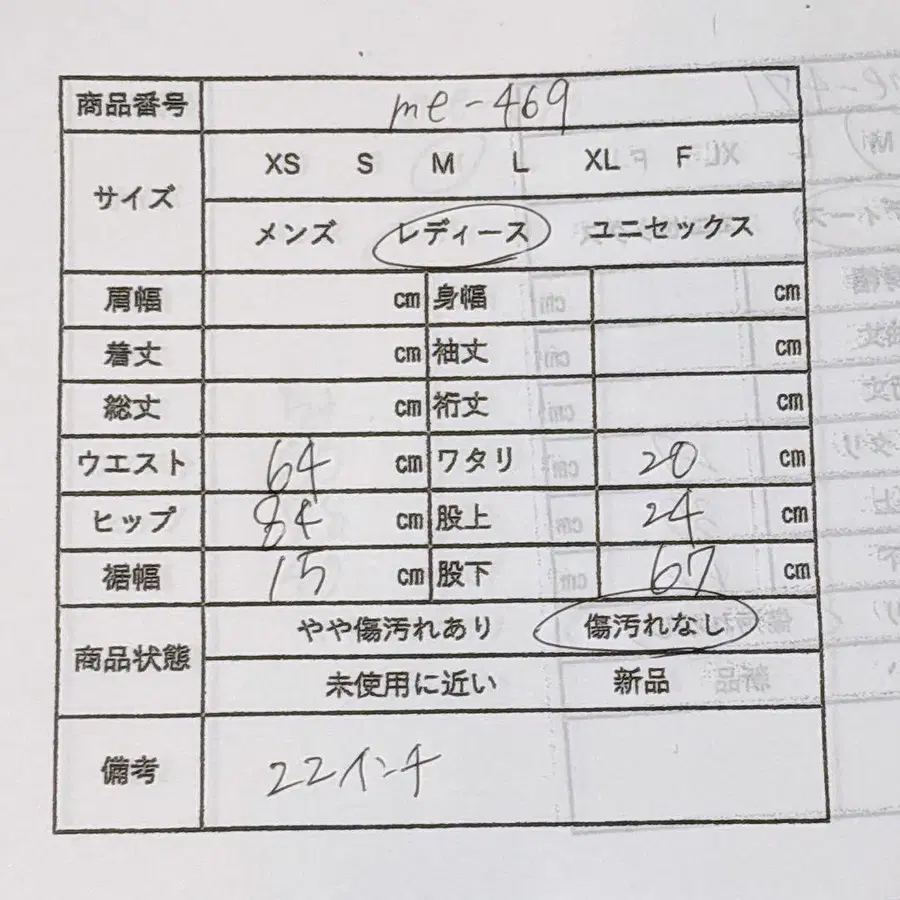 商品番号 me-469
サイズ XS S M L XL F
メンズ レディース ユニセックス
肩幅 cm 身幅 cm
着丈 cm 袖丈 cm
総丈 cm 裄丈 cm
ウエスト 64 cm ワタリ 20 cm
ヒップ 84 cm 股上 24 cm
裾幅 15 cm 股下 67 cm
商品状態 やや傷汚れあり 傷汚れなし
未使用に近い 新品
備考 22インチ